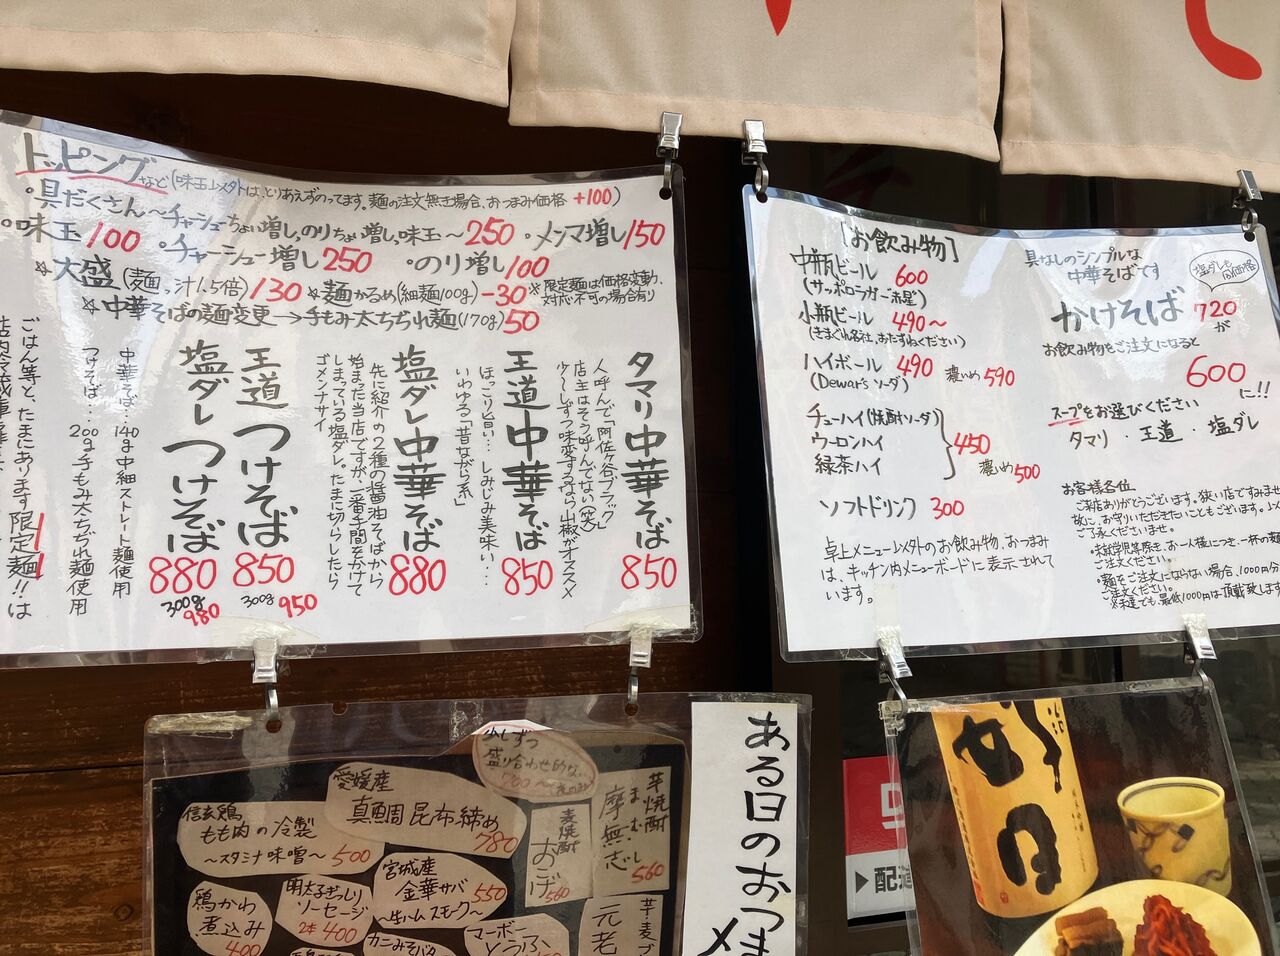 トッピング など(味玉以外は、とりあえずのってます。麺の注文無き場合、おつまみ価格 +100)
・具だくさん〜チャーシューちょい増し、のりちょい増し、味玉〜 250 ・メンマ増し 150
・味玉 100 ・チャーシュー増し 250 ・のり増し 100
☆大盛(麺、汁1.5倍) 130 ☆麺かるめ(細麺100g) -30 ※限定麺は価格変動、
対応不可の場合有り
☆中華そばの麺変更→手もみ太ちぢれ麺(170g) 50
タマリ中華そば 850
人呼んで「阿佐ヶ谷ブラック」
店主はそう呼んでない(笑)
少〜しずつ味変するなら山椒がオススメ
王道中華そば 850
ほっこり旨い…しみじみ美味い…
いわゆる「昔ながら系」
塩ダレ中華そば 880
先に紹介の2種の醤油そばから
始まった当店ですが、一番手間をかけて
しまっている塩ダレ。たまに切らしたら
ゴメンナサイ
王道つけそば 850
300g 950
塩ダレつけそば 880
300g 980
中華そば…140g中細ストレート麺使用
つけそば…200g手もみ太ちぢれ麺使用
ごはん等と、たまにあります限定麺!!は
[お飲み物]
中瓶ビール 600
(サッポロラガー赤星)
小瓶ビール 490〜
(きまぐれ各社、おたずねください)
ハイボール 490 濃いめ 590
(Dewar's ソーダ)
チューハイ(焼酎ソーダ)
ウーロンハイ
緑茶ハイ
450
濃いめ 500
ソフトドリンク 300
卓上メニュー以外のお飲み物、おつまみ
は、キッチン内メニューボードに表示されて
います。
具なしのシンプルな
中華そばです
塩ダレも
同価格
かけそば 720
が
お飲み物をご注文になると
600
に!!
スープをお選びください
タマリ・王道・塩ダレ
お客様各位
ご来店ありがとうございます。狭い店ですみませ
故に、お守りいただきたいこともございます。
ご了承くださいませ。
・未就学児等除き、お一人様につき、一杯の麺
ご注文ください。
・麺をご注文にならない場合、1000円分
ご注文ください。
※未達でも、最低1000円は頂戴致します
少しずつ
盛り合わせ的な…
700〜
愛媛産
真鯛昆布締め 780
信玄鶏
もも肉の冷製
〜スタミナ味噌〜 500
宮城産
金華サバ 550
〜生ハムスモーク〜
明太ぎっしり
ソーセージ
2本 400
鶏かわ
煮込み
400
カニみそバタ
マーボー
とうふ
芋焼酎
摩無志
まむし
560
麦焼酎
おこげ
560
芋・麦
元老
ある日のおつま
メ
配達